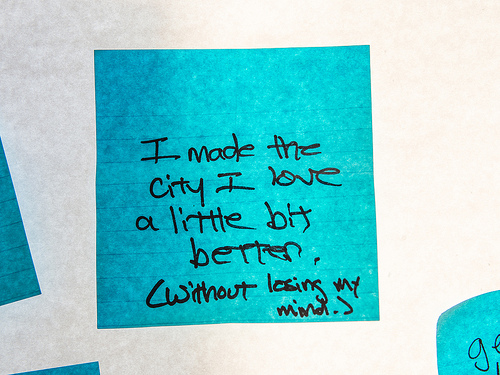 I made the
city I love
a little bit
better.
(without losing my
mind.)
ge